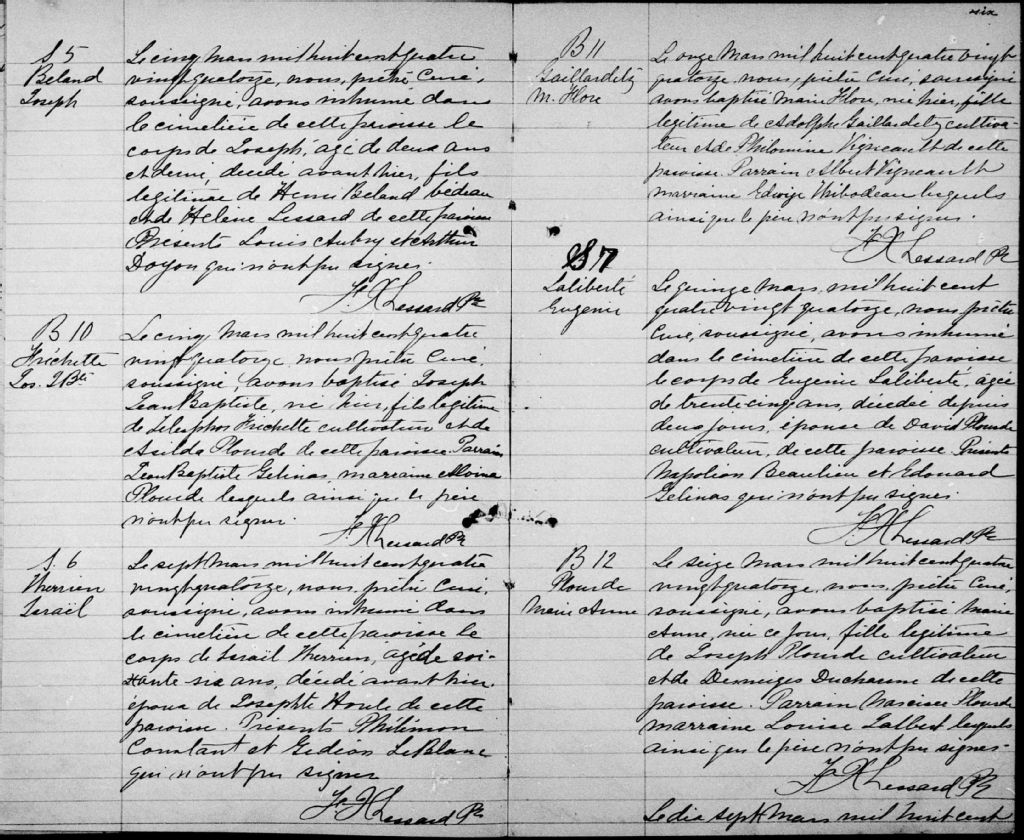 six
S 5
Beland
Joseph
Le cinq Mars mil huit cent quatre
vingt quatorze, nous, prêtre Curé,
soussigné, avons inhumé dans
le cimetière de cette paroisse le
corps de Joseph, agé de deux ans
et demi, décédé avant hier, fils
legitime de Henri Beland bedeau
et de Hélène Lessard de cette paroisse
Présents Louis Aubry et Arthur
Doyon qui n'ont pu signer.
F. X. Lessard Ptr
B 10
Frichette
Jos. J Bte
Le cinq Mars mil huit cent quatre
vingt quatorze, nous prêtre Curé,
soussigné, avons baptisé Joseph
Jean Baptiste, né hier, fils legitime
de Telesphor Frichette cultivateur et de
Exilda Plourde de cette paroisse. Parrain
Jean Baptiste Gelinas, marraine Alvina
Plourde lesquels ainsi que le père
n'ont pu signer.
F. X. Lessard Ptr
S. 6
Therrien
Israël
Le sept Mars mil huit cent quatre
vingt quatorze, nous, prêtre Curé,
soussigné, avons inhumé dans
le cimetière de cette paroisse le
corps de Israël Therrien, agé de soi-
xante six ans, décédé avant hier,
époux de Josephte Houle de cette
paroisse. Présents Philimon
Constant et Gedeon LeBlanc
qui n'ont pu signer
F. X. Lessard Ptr
B 11
Gaillardetz
M. Flore
Le onze Mars mil huit cent quatre vingt
quatorze, nous, prêtre Curé, soussigné
avons baptisé Marie Flore, née hier, fille
legitime de Adolphe Gaillardetz cultiva-
teur et de Philomine Vigneault de cette
paroisse. Parrain Albert Vigneault
marraine Edwige Thibodeau lesquels
ainsi que le père n'ont pu signer.
F. X. Lessard Ptr
S 7
Laliberté
Eugenie
Le quinze Mars, mil huit cent
quatre vingt quatorze, nous prêtre
Curé, soussigné, avons inhumé
dans le cimetière de cette paroisse
le corps de Eugenie Laliberté, agée
de trente cinq ans, décédée depuis
deux jours, épouse de David Plourde
cultivateur, de cette paroisse. Présents
Napoléon Beaulieu et Edouard
Gelinas qui n'ont pu signer.
F. X. Lessard Ptr
B 12
Plourde
Marie Anne
Le seize Mars mil huit cent quatre
vingt quatorze, nous, prêtre Curé,
soussigné, avons baptisé Marie
Anne, née ce jour, fille legitime
de Joseph Plourde cultivateur
et de Demeiges Ducharme de cette
paroisse. Parrain Narcisse Plourde
marraine Louise Talbert lesquels
ainsi que le père n'ont pu signer.
F. X. Lessard Ptr
Le dix sept Mars mil huit cent